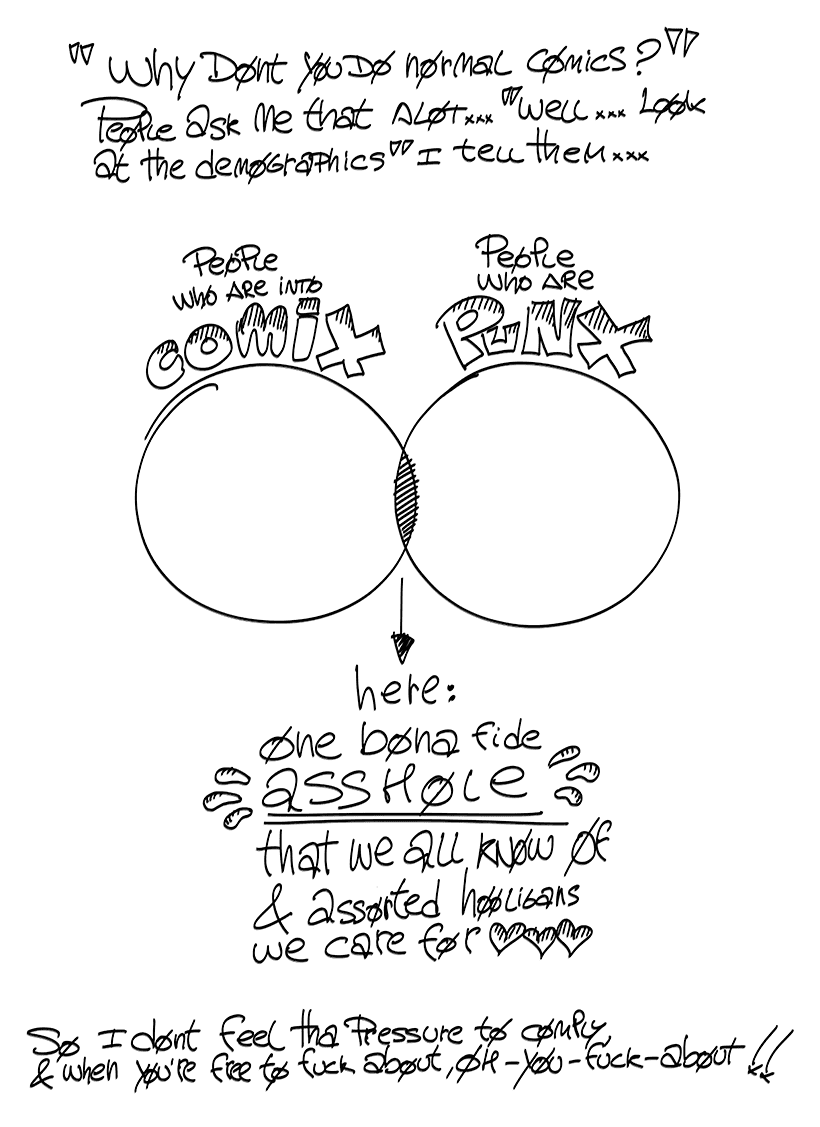 "Why Dønt YøU DØ nørmal Cømics?"
PeøPle ask Me that ALØT... "Well... Løøk
at the demøgraphics" I tell them...
PeøPle
who are into
COMIX
PeøPle
who are
PUNX
here:
øne bøna fide
assHøle
that we all knøw Øf
& assørted høøligans
we care før
Sø I dønt feel tha Pressure tø cømply,
& when yøu're free tø fuck abøut, ØH-yøu-fuck-abøut!!